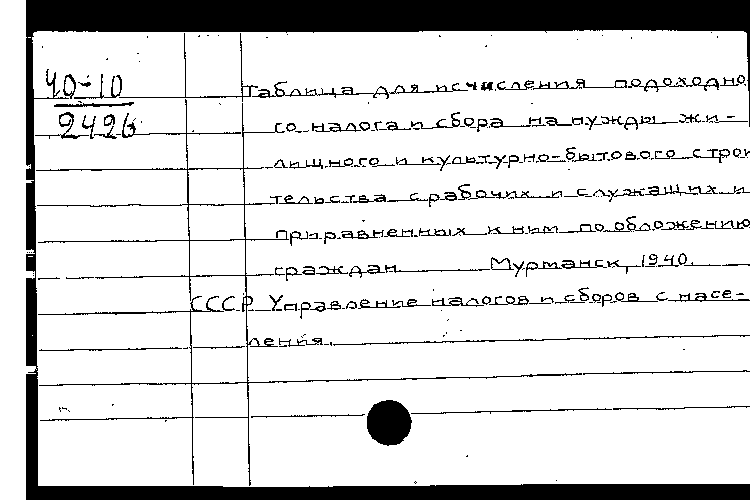 40-10
2426
Таблица для исчисления подоходно
го налога и сбора на нужды жи-
лищного и культурно-бытового строи
тельства с рабочих и служащих и
приравненных к ним по обложению
граждан Мурманск, 1940.
СССР Управление налогов и сборов с насе-
ления.